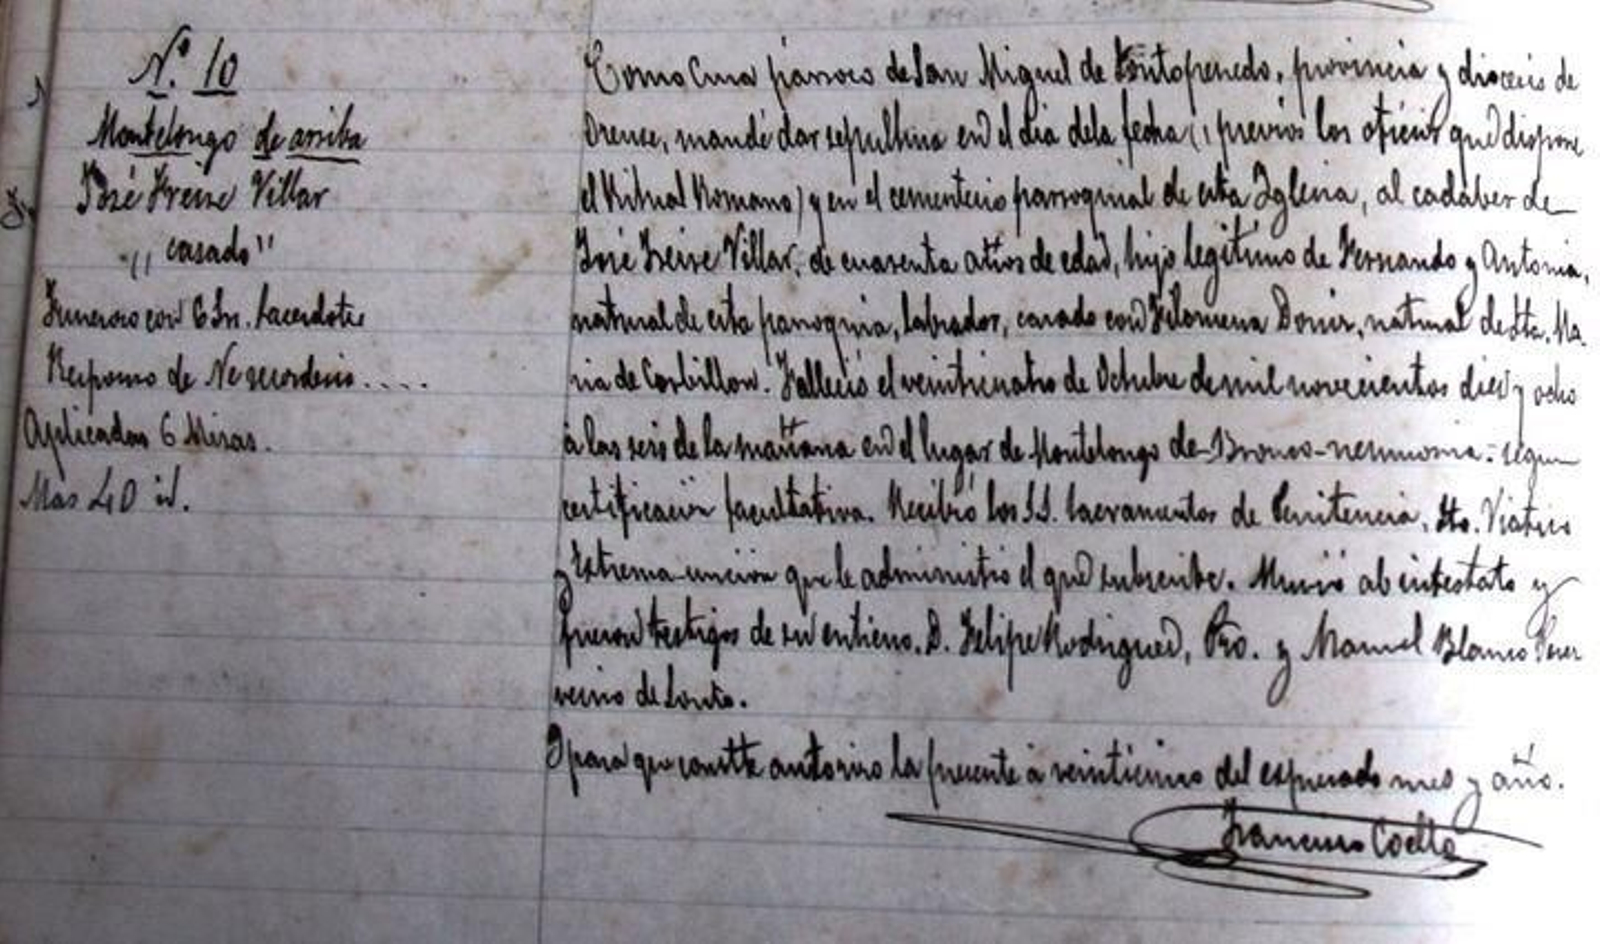 N.º 10
Montelongo de arriba
José Freire Villar
"casado"
Funeraro con 6 Sr. Sacerdotes
Responso de Ne recorderis....
Aplicadas 6 Misas.
Mas 40 id.
Como Cura párroco de San Miguel de Pontopenedo, provincia y diocesis de
Orense, mandé dar sepultura en el dia de la fecha (previos los oficios que dispone
el Ritual Romano) y en el cementerio parroquial de esta Iglesia, al cadaber de
José Freire Villar, de cuarenta años de edad, hijo legítimo de Fernando y Antonia,
natural de esta parroquia, labrador, casado con Filomena, natural de Sta. Ma-
ria de Corbillon. Falleció el veinticuatro de Octubre de mil novecientos diez y ocho
á las seis de la mañana en el lugar de Montelongo de Bronco-neumonia: según
certificación facultativa. Recibió los SS. Sacramentos de Penitencia, Sto. Viatico
y Extrema-unción que le administró el que subscribe. Murió ab intestato y
fueron testigos de su entierro. D. Felipe Rodriguez, Pro. y Manuel Blanco Perez
vecino de Souto.
Y para que conste autorizo la presente á veinticinco del espresado mes y año.
Francisco Coello